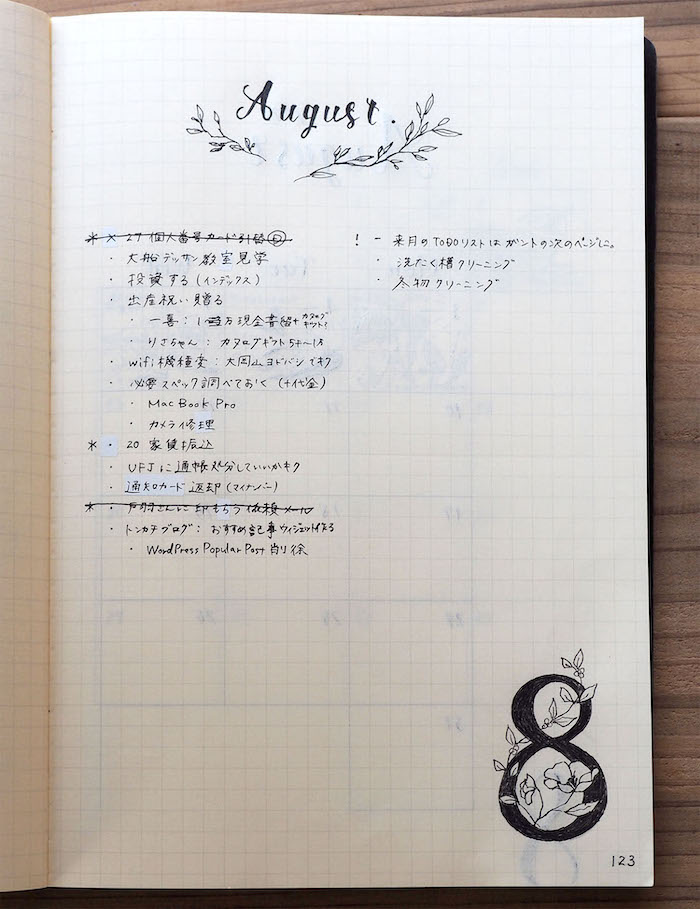 August.
* × 27 個人番号カード引替 日
・ 大船デッサン教室見学
・ 投資する (インデックス)
・ 出産祝い贈る
・ 一喜: 1万現金書留+カタログギフト?
・ りさちゃん: カタログギフト5千〜1万
・ wifi機種変: 大岡山ヨドバシでキク
・ 必要スペック調べておく (+代金)
・ MacBook Pro
・ カメラ修理
* ・ 20 家賃振込
・ UFJに通帳処分していいかキク
・ 通知カード返却 (マイナンバー)
* ・ 戸羽さんに印もらう依頼メール
・ トンカチブログ: おすすめ記事ウィジェット作る
・ WordPress Popular Post 削除
! − 来月のTODOリストはガントの次のページに。
・ 洗たく槽クリーニング
・ 冬物クリーニング
8
123